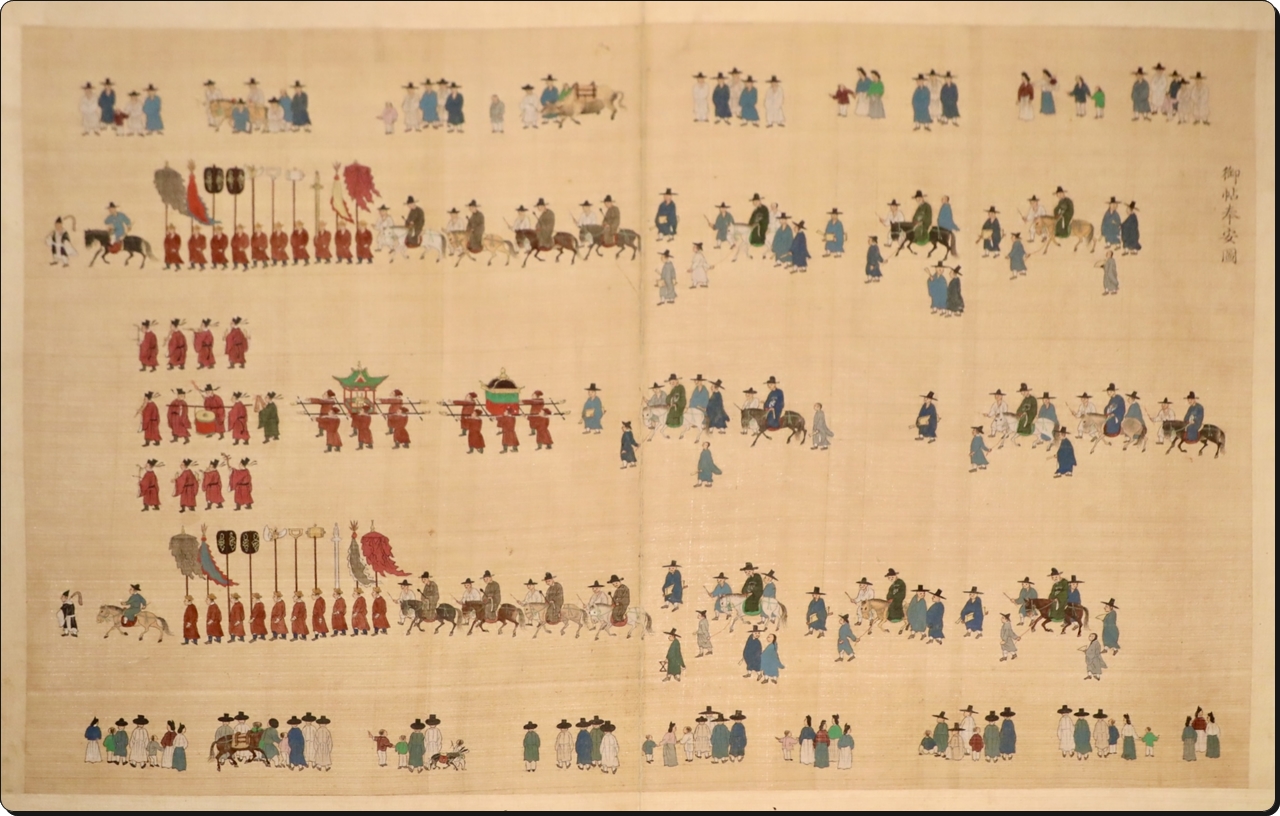 御帖奉安圖